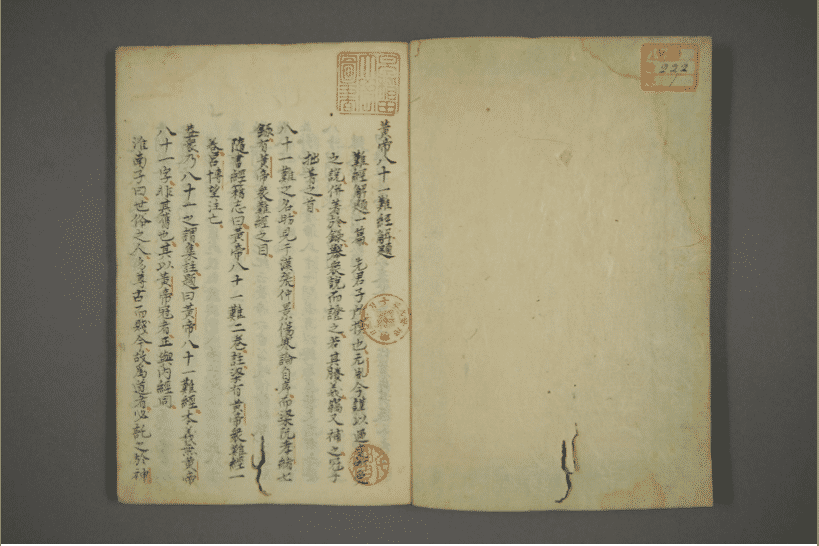 黃帝八十一難經解題
難經解題一篇 先君子所撰也元堅今謹以
之說併著於錄擧衆說而證之若其賸義竊又補之冠于
拙著之首
八十一難之名昉見于漢張仲景傷寒論自序而梁阮孝緖七
錄有黃帝衆難經之目
隨書經籍志曰黃帝八十一難二卷註梁有黃帝衆難經一
卷呂博望注亡
蓋衆乃八十一之謂集註題曰黃帝八十一難經本義無黃帝
八十一字非其舊也其以黃帝冠者正與內經同
淮南子曰世俗之人多尊古而賤今故爲道者必託之於神
222